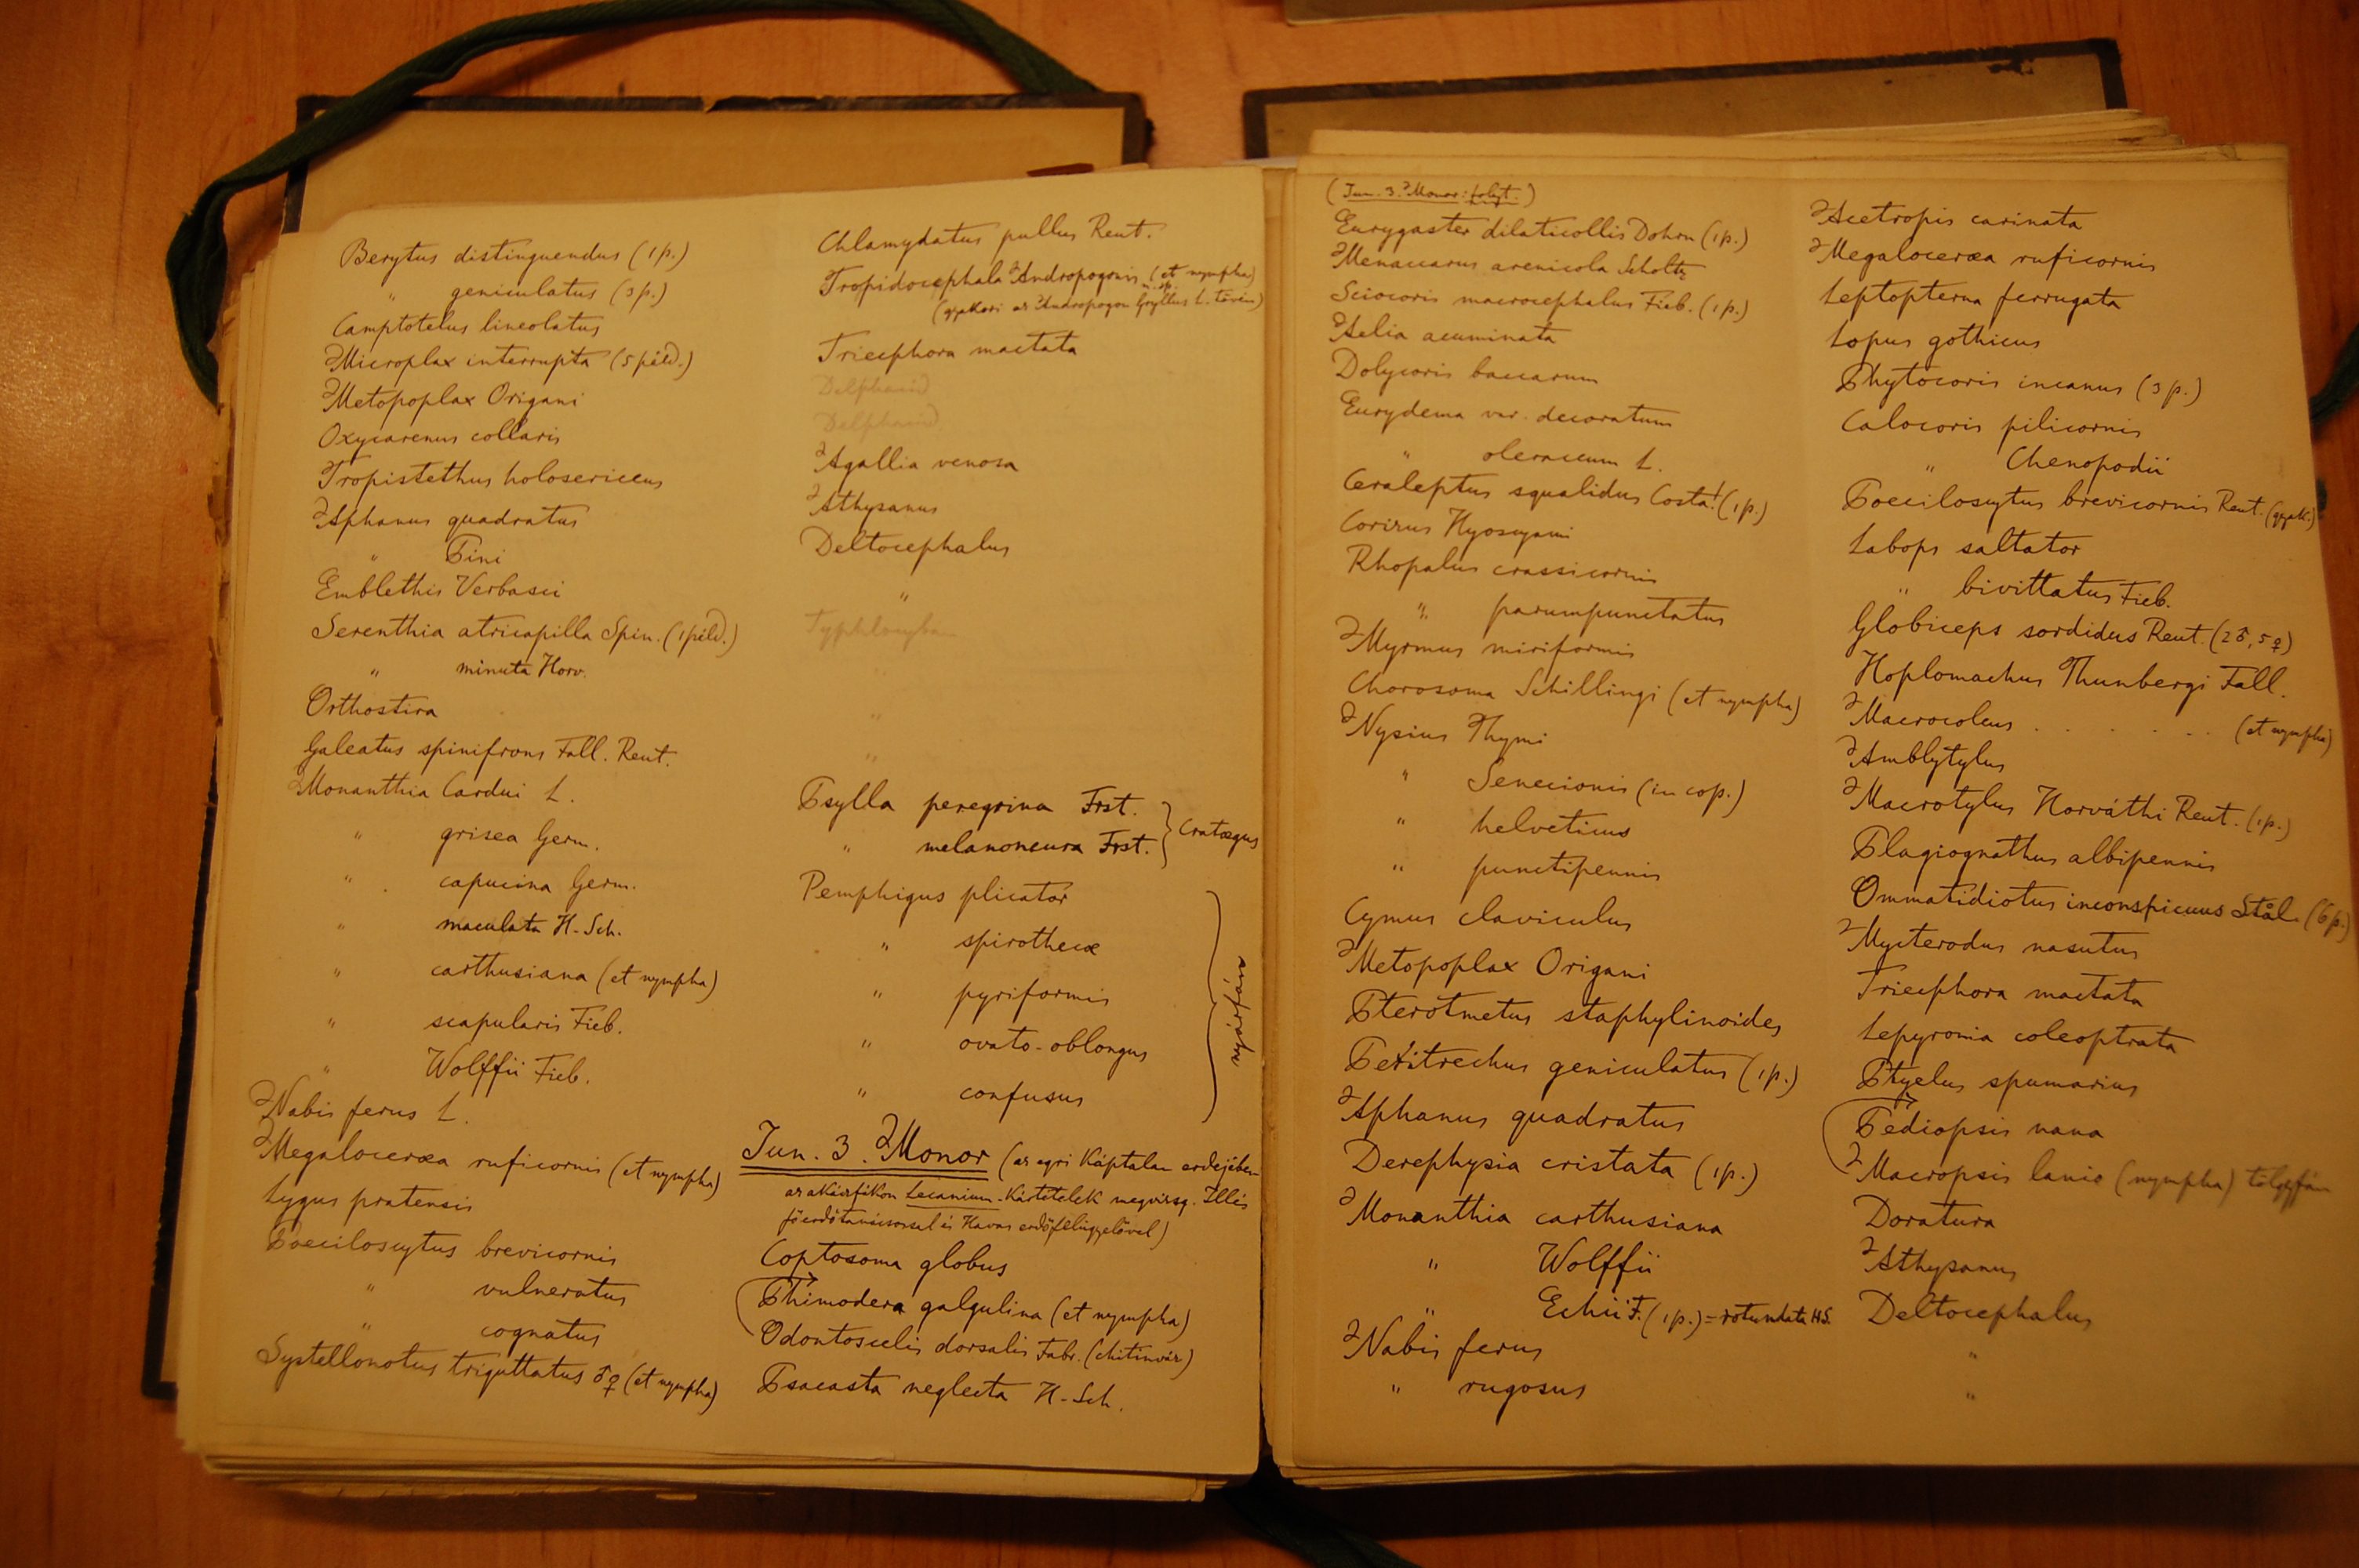 Berytus distinguendus (1 p.)
" geniculatus (3 p.)
Camptotelus lineolatus
Microplax interrupta (5 péld.)
Metopoplax Origani
Oxycarenus collaris
Tropistethus holosericeus
Aphanus quadratus
" Pini
Emblethis Verbasci
Serenthia atricapilla Spin. (1 péld.)
" minuta Horv.
Orthostira
Galeatus spinifrons Fall. Reut.
Monanthia Cardui L.
" grisea Germ.
" capucina Germ.
" maculata H-Sch.
" carthusiana (et nympha)
" scapularis Fieb.
" Wolffii Fieb.
Nabis ferus L.
Megaloceræa ruficornis (et nympha)
Lygus pratensis
Poeciloscytus brevicornis
" vulneratus
" cognatus
Systellonotus triguttatus ♂♀ (et nympha)
Chlamydatus pullus Reut.
Tropidocephala Andropogonis n. sp. (et nympha)
(gyakori az Andropogon Gryllus L. tövén)
Triecphora mactata
Delphacid
Delphacid
Agallia venosa
Athysanus
Deltocephalus
"
Typhlocyba
"
"
Psylla peregrina Frst.
" melanoneura Frst. } Cratægus
Pemphigus plicator
" spirothecæ
" pyriformis
" ovato-oblongus
" confusus
nyárfán
Jun. 3. Monor (az egri Káptalan erdejében
az akáczfákon Lecanium-kártételek megvizsg. Illés
főerdőtanácsossal és Havas erdőfelügyelővel)
Coptosoma globus
Phimodera galgulina (et nympha)
Odontoscelis dorsalis Fabr. (chitinvár)
Psacasta neglecta H-Sch.
(Jun. 3. Monor: folyt.)
Eurygaster dilaticollis Dohrn (1 p.)
Menaccarus arenicola Scholtz
Sciocoris macrocephalus Fieb. (1 p.)
Aelia acuminata
Dolycoris baccarum
Eurydema var. decoratum
" oleraceum L.
Ceraleptus squalidus Costa! (1 p.)
Corizus Hyoscyami
Rhopalus crassicornis
" parumpunctatus
Myrmus miriformis
Chorosoma Schillingi (et nympha)
Nysius Thymi
" Senecionis (in cop.)
" helveticus
" punctipennis
Cymus claviculus
Metopoplax Origani
Pterotmetus staphylinoides
Peritrechus geniculatus (1 p.)
Aphanus quadratus
Derephysia cristata (1 p.)
Monanthia carthusiana
" Wolffii
" Echii F. (1 p.) = rotundata HS.
Nabis ferus
" rugosus
Acetropis carinata
Megaloceræa ruficornis
Leptopterna ferrugata
Lopus gothicus
Phytocoris incanus (3 p.)
Calocoris pilicornis
" Chenopodii
Poeciloscytus brevicornis Reut. (gyak.)
Labops saltator
" bivittatus Fieb.
Globiceps sordidus Reut. (2 ♂, 5 ♀)
Hoplomachus Thunbergi Fall.
Macrocoleus . . . . . . . (et nympha)
Amblytylus
Macrotylus Horváthi Reut. (1 p.)
Plagiognathus albipennis
Ommatidiotus inconspicuus Stål (6 p.)
Mycterodus nasutus
Triecphora mactata
Lepyronia coleoptrata
Ptyelus spumarius
Pediopsis nana
Macropsis lanio (nympha) tölgyfán
Doratura
Athysanus
Deltocephalus
"
"